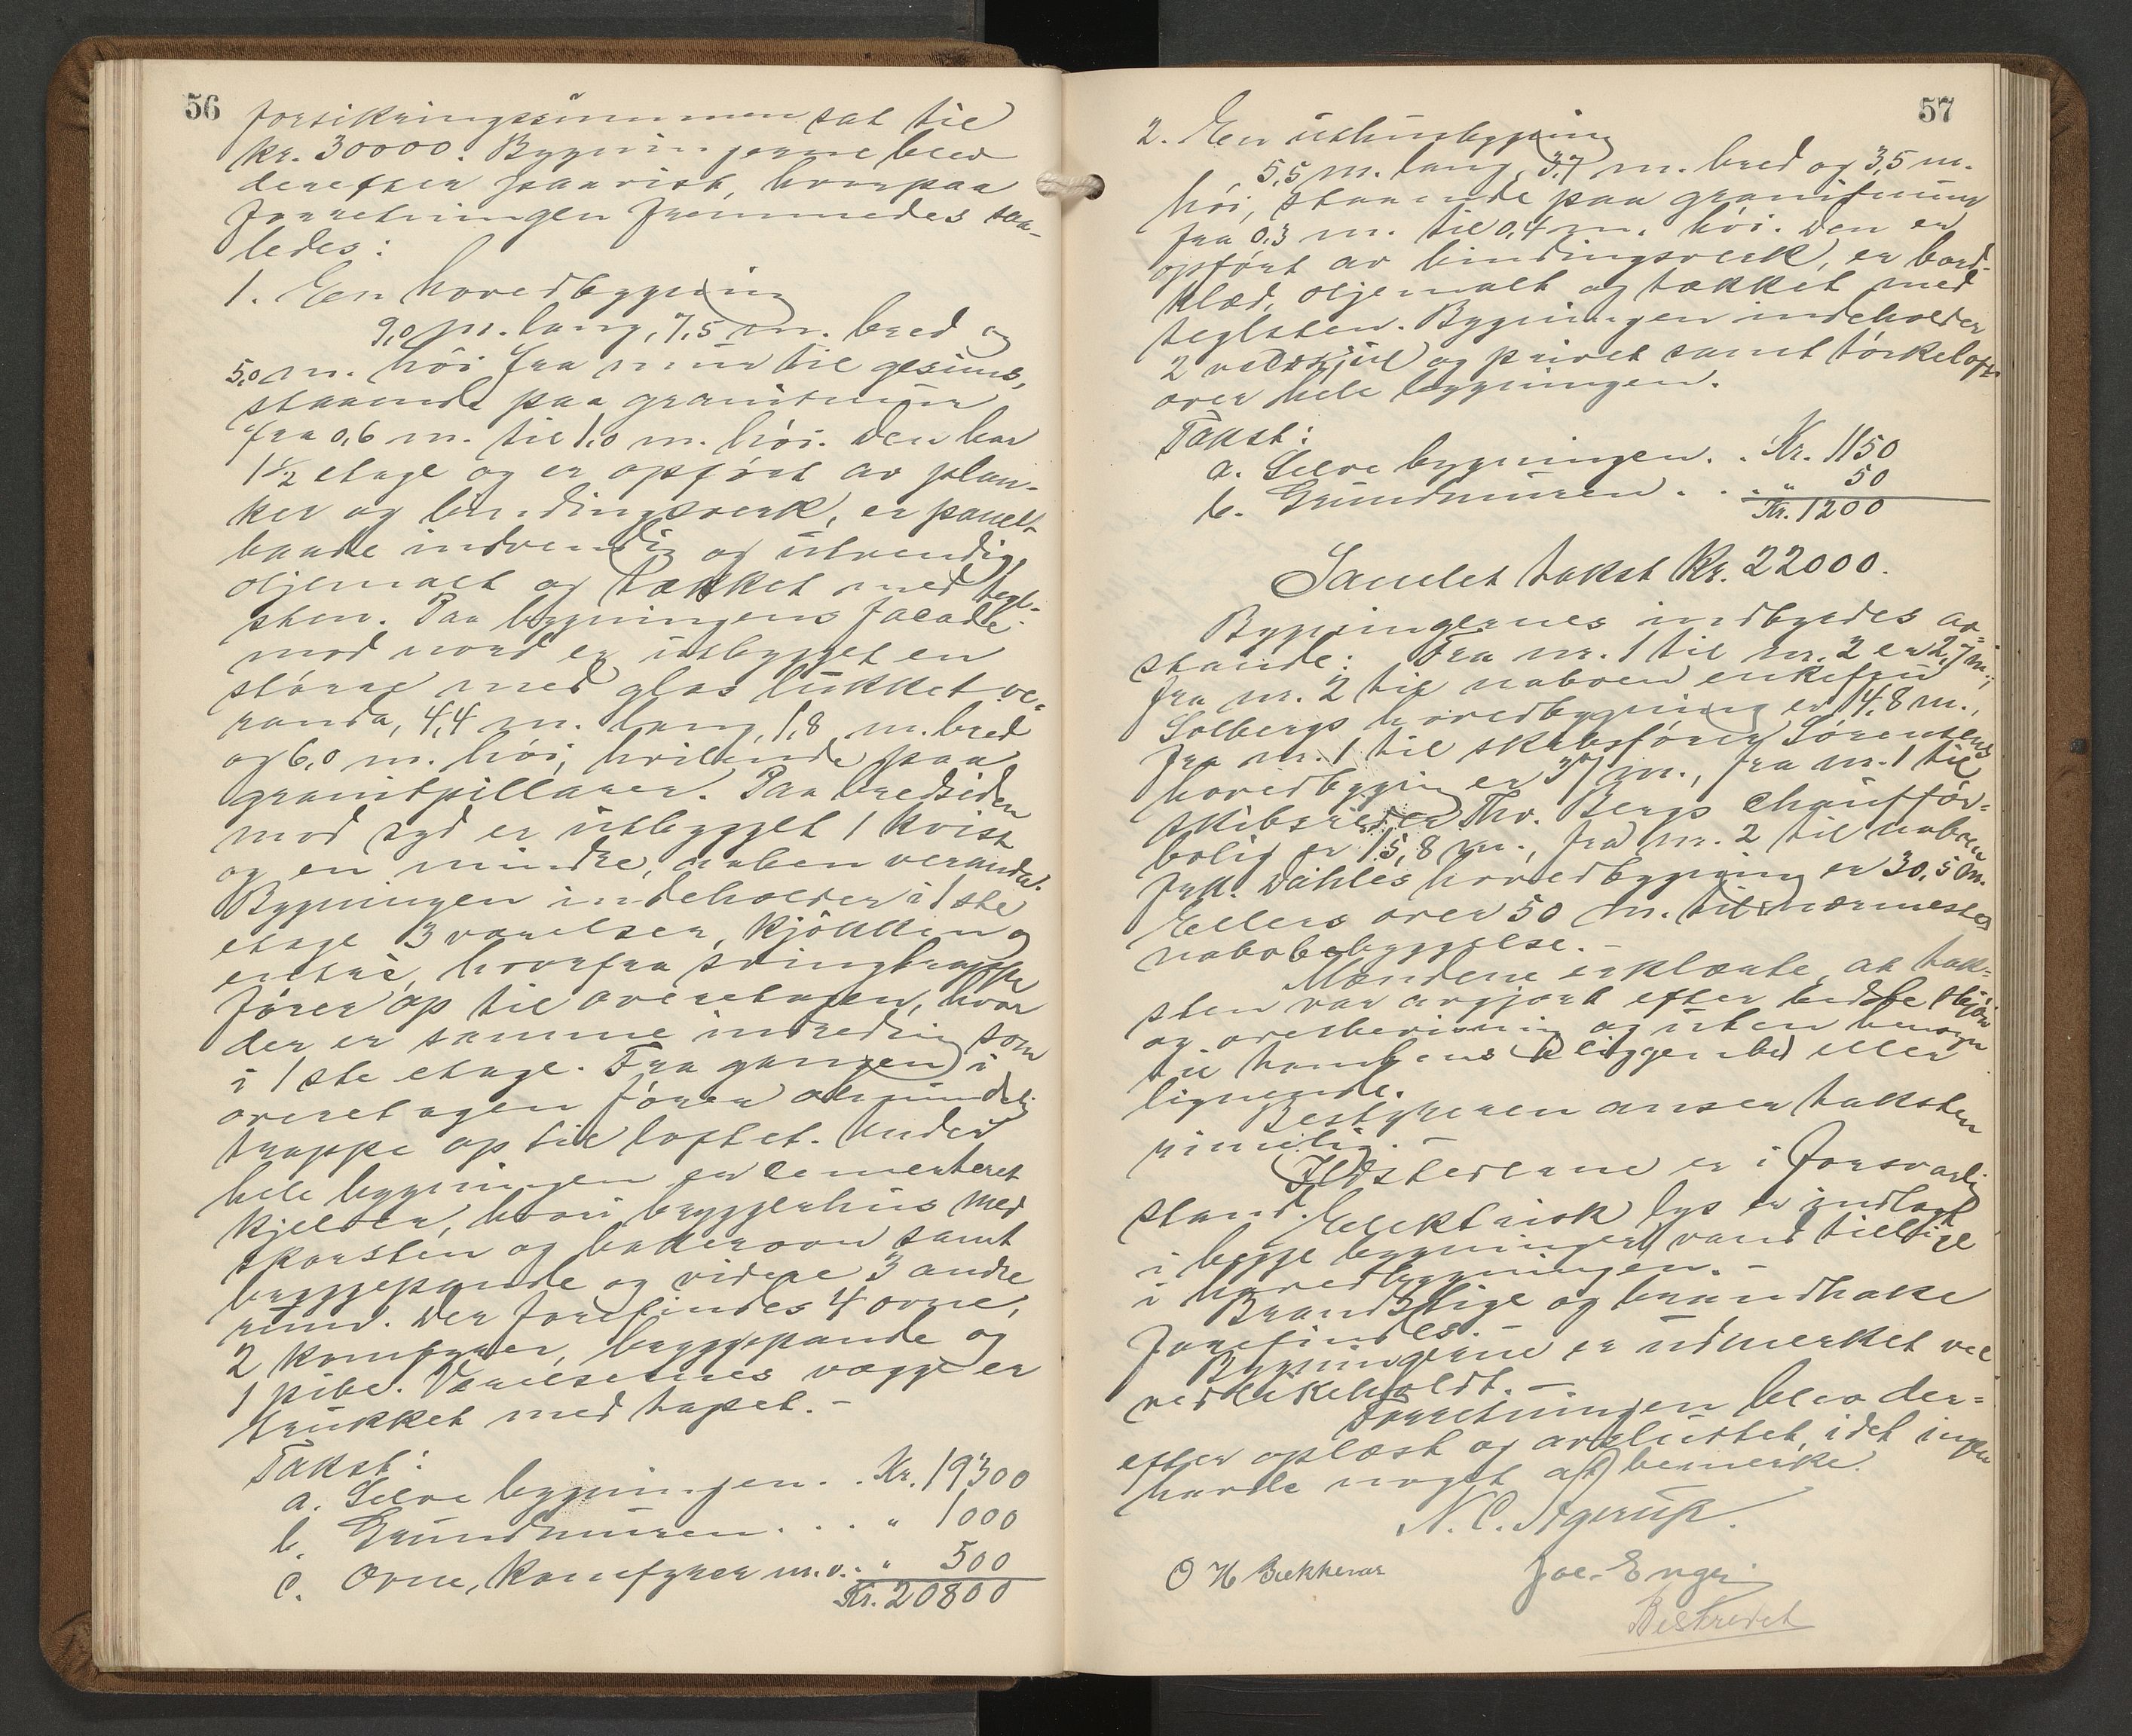 56
forsikringssummen sat til
kr. 30000. Bygningerne blev
derefter paavist, hvorpaa
forretningen fremmedes saa-
ledes:
1. En hovedbygning
9,0 m. lang, 7,5 m. bred og
5,0 m. høi fra mur til gesims,
staaende paa granitmur
fra 0,6 m. til 1,0 m. høi. Den har
1 1/2 etage og er opført av plan-
ker og bindingsverk, er panelt
baade indvendig og utvendig,
oljemalt og tækket med tegl-
sten. Paa bygningens facade
mod nord er utbygget en
større med glas lukket ve-
randa, 4,4 m. lang, 1,8 m. bred
og 6,0 m. høi, hvilende paa
granitpillarer. Paa bredsiden
mod syd er utbygget 1 kvist
og en mindre, aaben veranda.
Bygningen indeholder i 1ste
etage 3 værelser, kjøkken og
entré, hvorfra svingtrappe
fører op til overetagen, hvor
der er samme indredning som
i 1ste etage. Fra gangen i
overetagen fører almindelig
trappe op til loftet. Under
hele bygningen er cementeret
kjelder, hvori bryggerhus med
skorsten og bakerovn samt
bryggepande og videre 3 andre
rum. Der forefindes 4 ovne,
2 komfyrer, bryggepande og
1 pibe. Værelsernes vægge er
trukket med tapet. -
Takst:
a. Selve bygningen. . Kr. 19300
b. Grundmuren . . . " 1000
c. Ovne, komfyrer m.v. . " 500
Kr. 20800
57
2. En uthusbygning
5,5 m. lang, 3,7 m. bred og 3,5 m.
høi, staaende paa granitmur
fra 0,3 m. til 0,4 m. høi. Den er
opført av bindingsverk, er bord-
klæd, oljemalt og tækket med
teglsten. Bygningen indeholder
2 vedskjul og privet samt tørkeloft
over hele bygningen.
Takst:
a. Selve bygningen. . Kr. 1150
b. Grundmuren . . . " 50
Kr. 1200
Samlet takst Kr. 22000.
Bygningernes indbyrdes av-
stande: Fra nr. 1 til nr. 2 er 2,7 m.,
fra nr. 2 til naboen enkefru
Solbergs hovedbygning er 14,8 m.,
fra nr. 1 til skibsfører Sørensens
hovedbygning er 37 m., fra nr. 1 til
skibsreder Thv. Bergs chauffør-
bolig er 15,8 m., fra nr. 2 til naboen
frk. Dahles hovedbygning er 30,5 m.
Ellers over 50 m. til nærmeste
nabobebyggelse. -
Mændene erklærte, at tak-
sten var avgjort efter bedste skjøn
og overbevisning og uten hensyn
til tomtens beliggenhed eller
lignende.
Bestyreren anser taksten
rimelig. -
Ildstederne er i forsvarlig
stand. Elektrisk lys er indlagt
i begge bygninger, vand tillike
i hovedbygningen. -
Brandstige og brandhake
forefindes. -
Bygningerne er udmerket vel
vedlikeholdt. -
Forretningen blev der-
efter oplæst og avsluttet, idet ingen
havde noget at bemerke.
N. C. Agerup.
O H Bekkevar
Joe. Enger